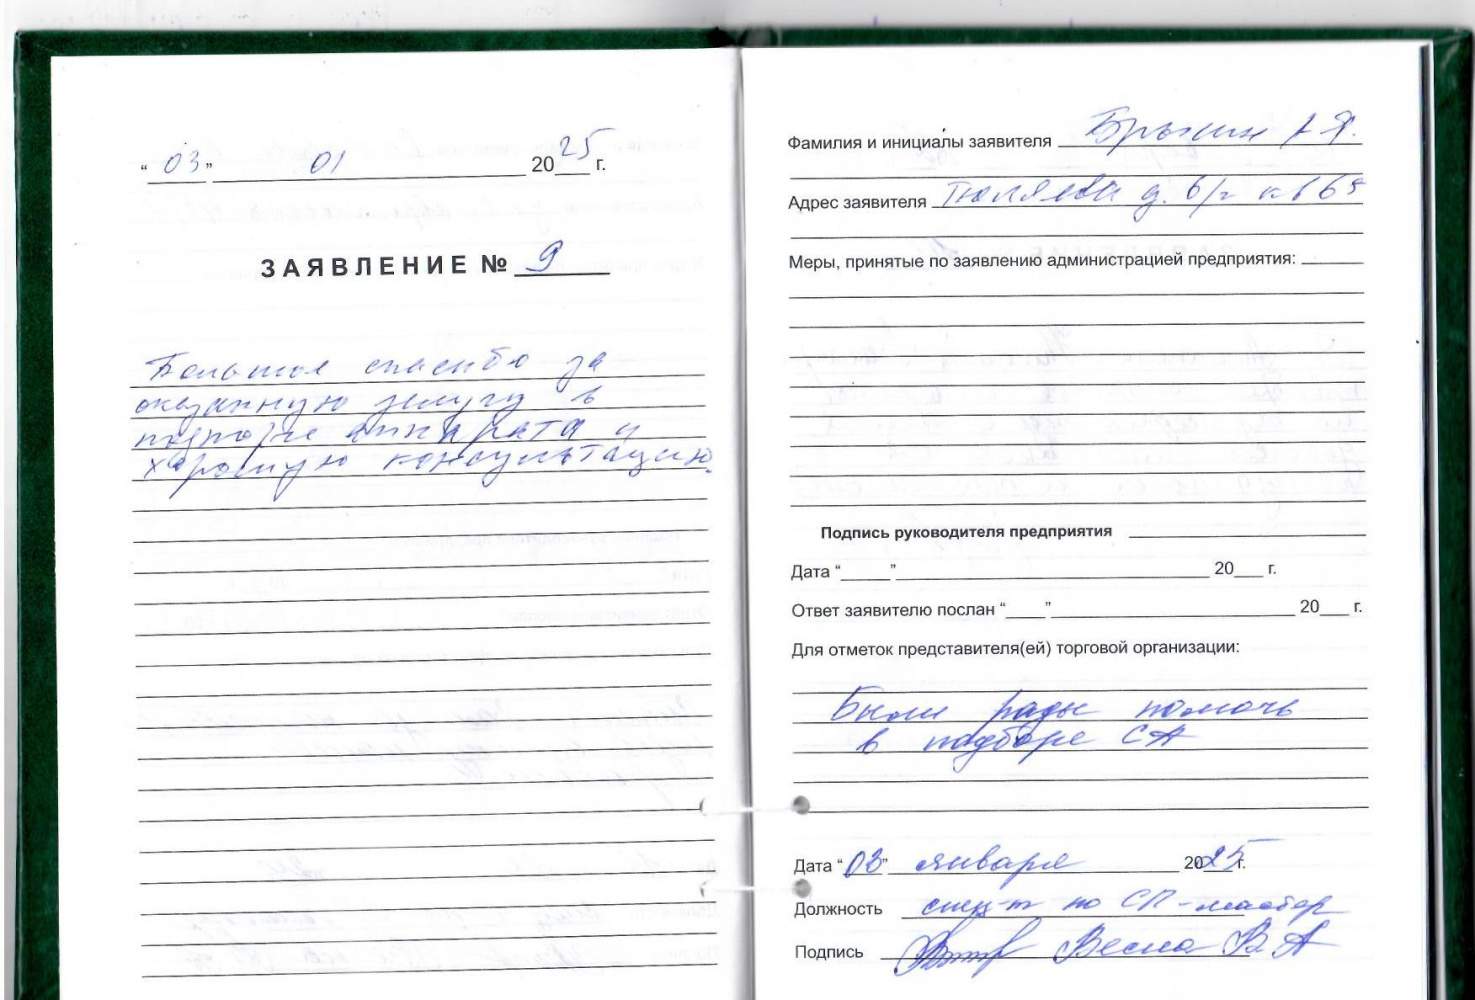 “03” 01 2025 г.
ЗАЯВЛЕНИЕ № 9
Большое спасибо за
оказанную услугу в
подборе аппарата и
хорошую консультацию.
Фамилия и инициалы заявителя
Адрес заявителя д. 6/2 кв 65
Меры, принятые по заявлению администрацией предприятия:
Подпись руководителя предприятия
Дата “ ” 20 г.
Ответ заявителю послан “ ” 20 г.
Для отметок представителя(ей) торговой организации:
Были рады помочь
в подборе СА
Дата “03” января 2025г.
Должность спец-т по СП-
Подпись Весна В А